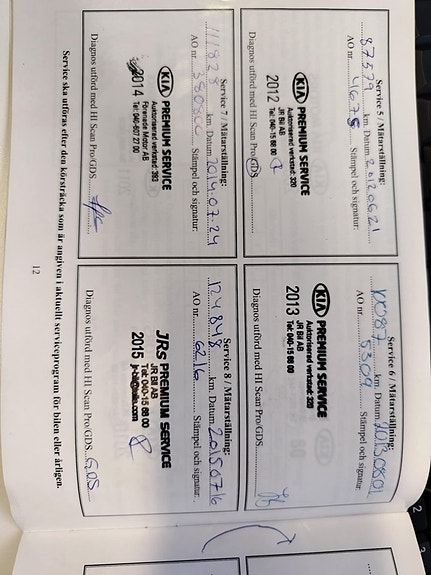 Service 5 / Mätarställning:
87579 km. Datum 20120621
AO nr. 4675 Stämpel och signatur:
KIA PREMIUM SERVICE
Auktoriserad verkstad: 320
JR Bil AB
2012 Tel: 040-15 68 00
Diagnos utförd med HI Scan Pro/GDS
Service 6 / Mätarställning:
km. Datum 20130801
AO nr. 5309 Stämpel och signatur:
KIA PREMIUM SERVICE
Auktoriserad verkstad: 320
JR Bil AB
2013 Tel: 040-15 68 00
Diagnos utförd med HI Scan Pro/GDS
Service 7 / Mätarställning:
111828 km. Datum 2014-07-24
AO nr. Stämpel och signatur:
KIA PREMIUM SERVICE
Auktoriserad verkstad: 293
Förenade Motor AB
2014 Tel: 040-607 27 00
Diagnos utförd med HI Scan Pro/GDS
Service 8 / Mätarställning:
124848 km. Datum 20150716
AO nr. 6216 Stämpel och signatur:
JRs PREMIUM SERVICE
JR Bil AB
Tel: 040-15 68 00
2015
Diagnos utförd med HI Scan Pro/GDS GDS
Service ska utföras efter den körsträcka som är angiven i aktuellt serviceprogram för bilen eller årligen.
12